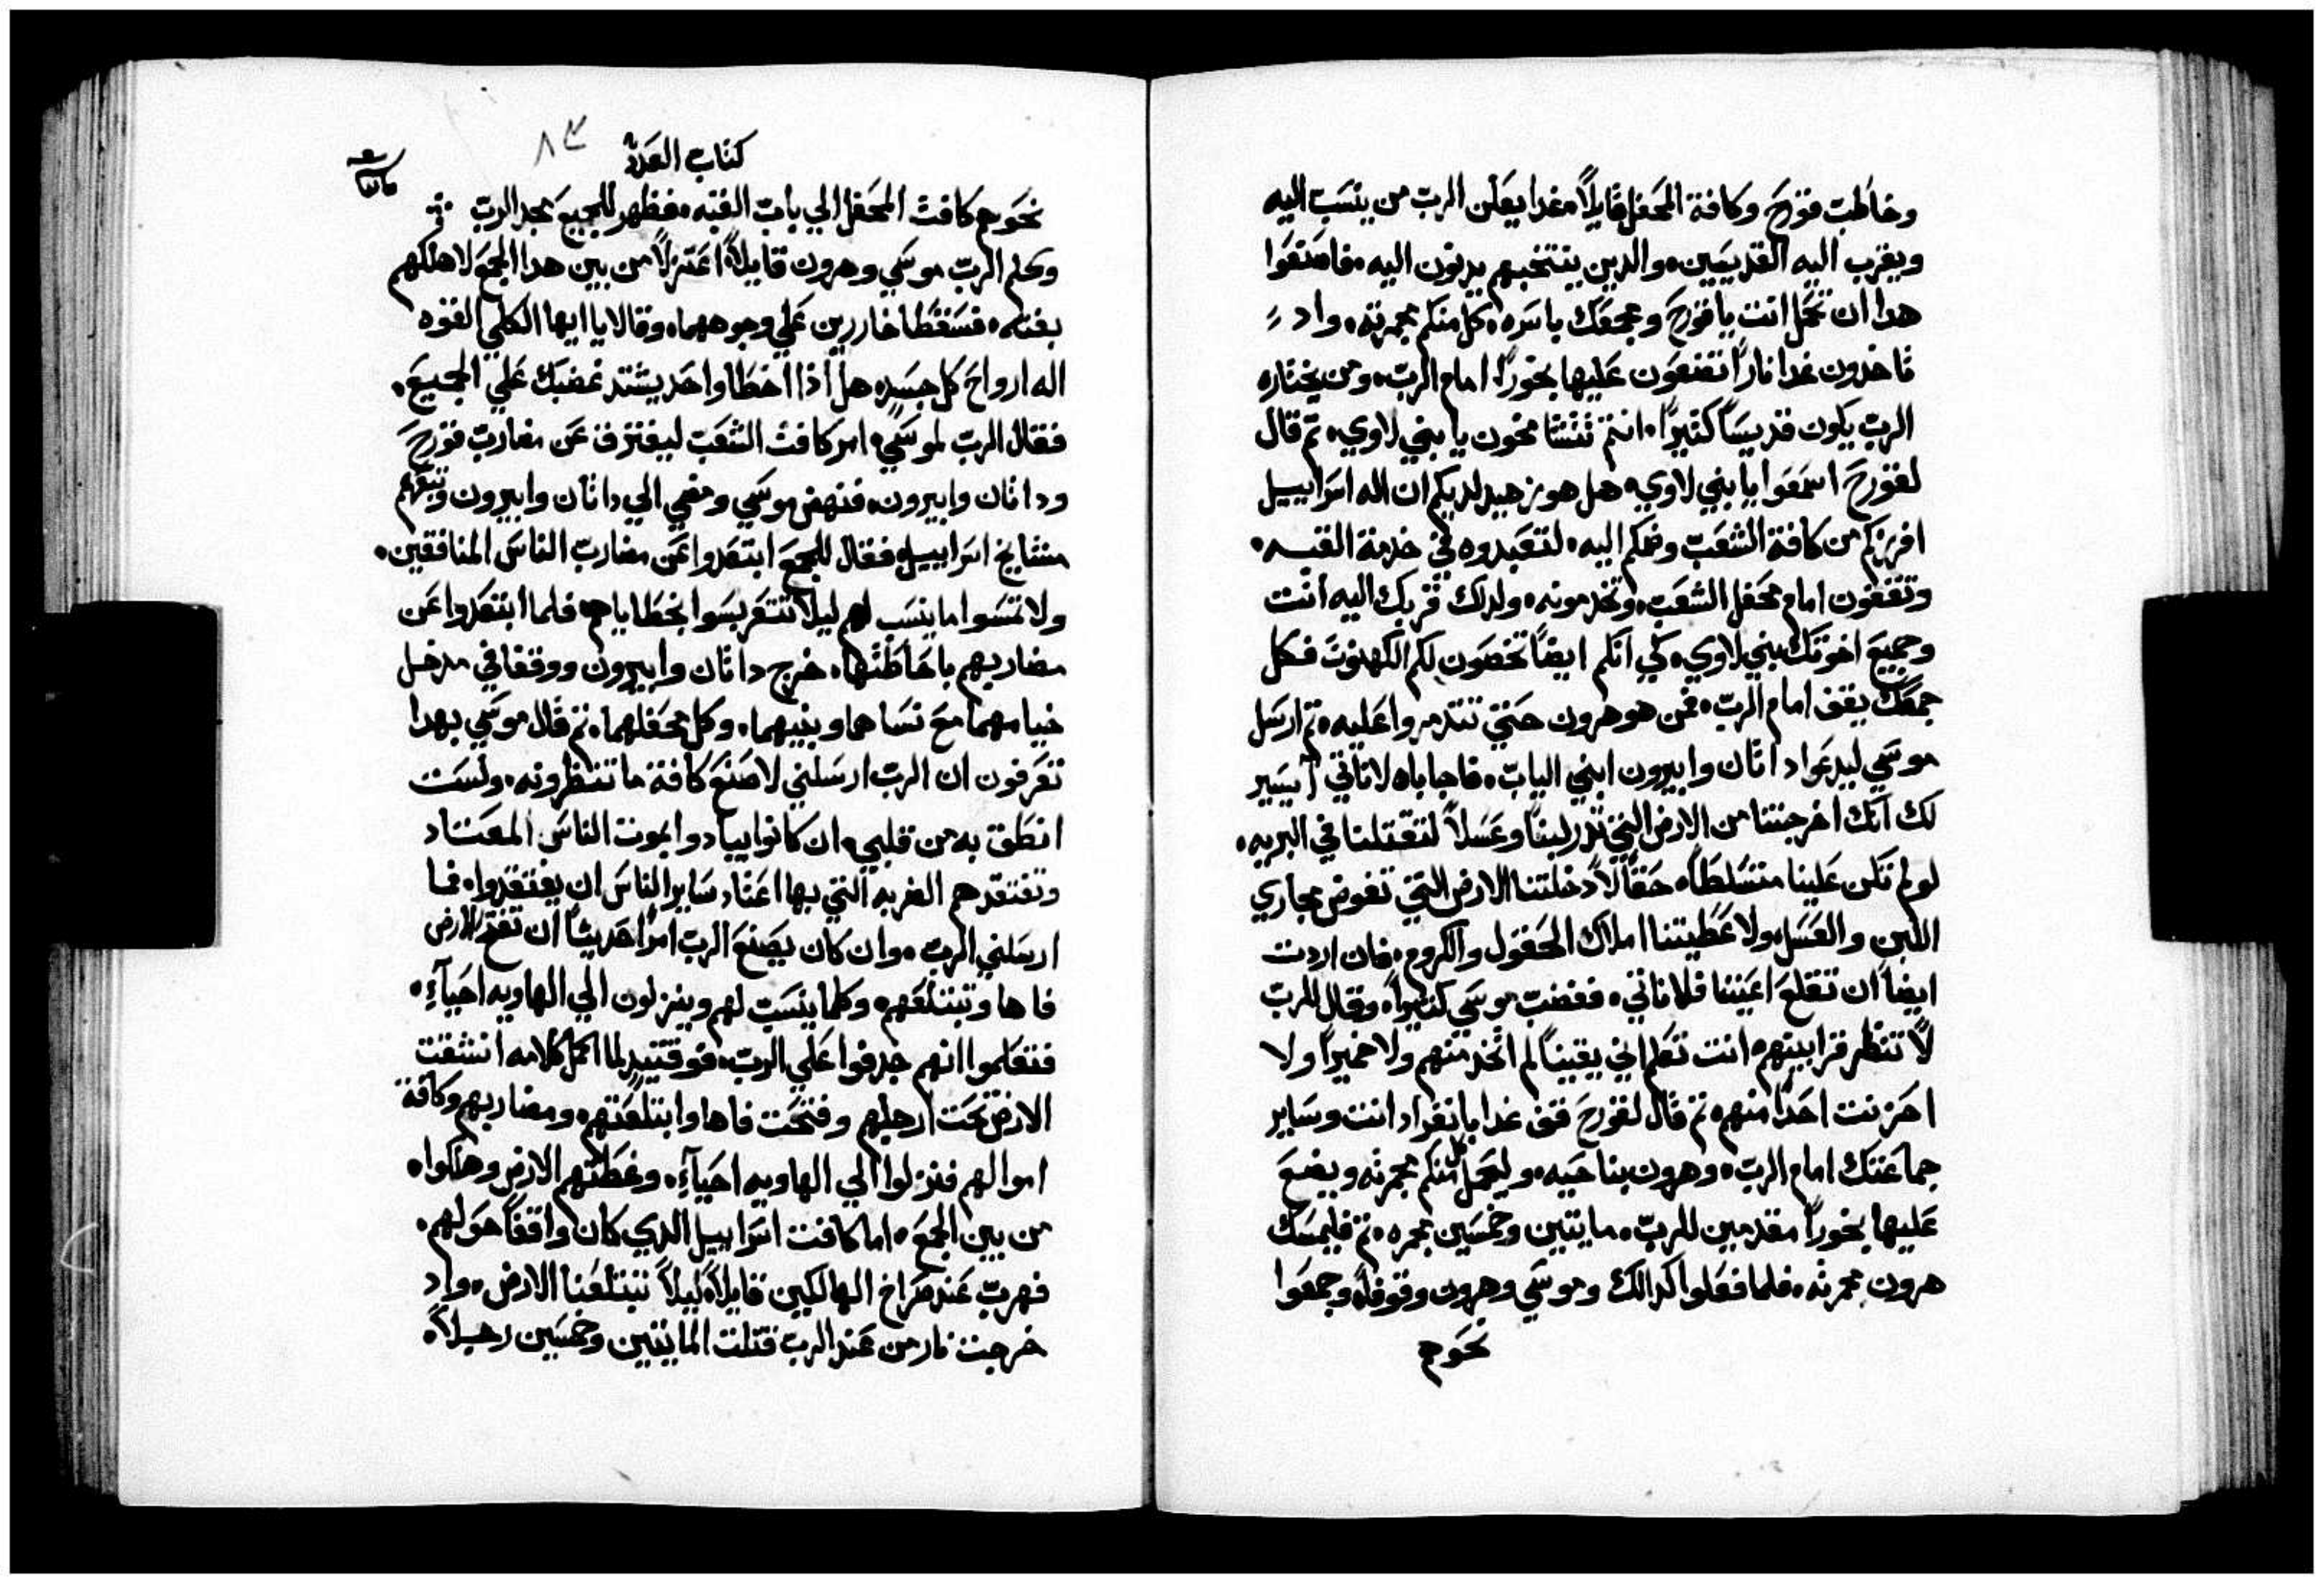 وخاطب قورح وكافة المحفل قايلاً غدا يعلن الرب من ينسب اليه
ويقرب اليه القديسين والدين ينتخبهم يدنون اليه فاصنعوا
هدا ان تحمل انت يا قورح ومجمعك باسره كل منكم مجمرته واد
تاخدون غدا ناراً تضعون عليها بخوراً امام الرب ومن يختاره
الرب يكون قديساً كتيراً انتم تتشامخون يا بني لاوي تم قال
لقورح اسمعوا يا بني لاوي هل هو زهيد لديكم ان اله اسراييل
افرزكم من كافة الشعب وضمكم اليه لتعبدوه في خدمة القبه
وتقفون امام محفل الشعب وتخدمونه ولدلك قربك اليه انت
وجميع اخوتك بني لاوي كي انكم ايضاً تخصون لكم الكهنوت فكل
جمعك يقف امام الرب فمن هو هرون حتي تتدمروا عليه تم ارسل
موسي ليدعوا داتان وابيرون ابني الياب فاجاباه لا ناتي أيسير
لك انك اخرجتنا من الارض التي تدر لبناً وعسلاً لتقتلنا في البريه
لو لم تكن علينا متسلطاً حقاً لأدخلتنا الارض التي تفوض مجاري
اللبن والعسل ولا عطيتنا املاك الحقول والكروم فان اردت
ايضاً ان تقلع اعيننا فلا ناتي فغضب موسي كتيراً وقال للرب
لا تنظر قرابينهم انت تعلم اني يقيناً لم اتخد منهم ولا حميراً ولا
احزنت احداً منهم تم قال لقورح قف غدا بانفراد انت وساير
جماعتك امام الرب وهرون بناحيه وليحمل كل منكم مجمرته ويضع
عليها بخوراً مقدمين للرب مايتين وخمسين مجمره تم فليمسك
هرون مجمرته فلما فعلوا كدالك وموسي وهرون وقوفاً وجمعوا
نحوهم
كتاب العدد
٨٣
نحوهم كافت المحفل الي باب القبه فظهر للجميع مجد الرب
وكلم الرب موسي وهرون قايلاً اعتزلا من بين هدا الجمع لاهلكهم
بغته فسقطا خاررين علي وجوههما وقالا يا ايها الكلي القوه
اله ارواح كل جسد هل اذا اخطا واحد يشتد غضبك علي الجميع
فقال الرب لموسي امر كافت الشعب ليفترق عن مضارب قورح
وداتان وابيرون فنهض موسي ومضي الي داتان وابيرون وتبعهم
مشايخ اسراييل فقال للجمع ابتعدوا عن مضارب الناس المنافقين
ولا تمسوا ما ينسب لهم ليلا تتعربسوا بخطاياهم فلما ابتعدوا عن
مضاربهم باحاطتها خرج داتان وابيرون ووقفا في مدخل
خيامهما مع نساهما وبنيهما وكل محفلهما تم قال موسي بهدا
تعرفون ان الرب ارسلني لاصنع كافة ما تنظرونه ولست
انطق به من قلبي ان كانوا يبادوا بموت الناس المعتاد
وتفتقدهم الضربه التي بها اعتاد ساير الناس ان يفتقدوا فما
ارسلني الرب وان كان يصنع الرب امراً حديثاً ان تفتح الارض
فاها وتبتلعهم وكلما ينسب لهم وينزلون الي الهاويه احيآءً
فتعلموا انهم جدفوا علي الرب فوقتيدٍ لما اكمل كلامه انشقت
الارض تحت ارجلهم وفتحت فاها وابتلعتهم ومضاربهم وكافة
اموالهم فنزلوا الي الهاويه احيآءً وغطتهم الارض وهلكوا
من بين الجمع اما كافت اسراييل الدي كان واقفاً حولهم
فهرب عند صراخ الهالكين قايلاً ليلا تبتلعنا الارض واد
خرجت نار من عند الرب قتلت المايتين وخمسين رجلاً